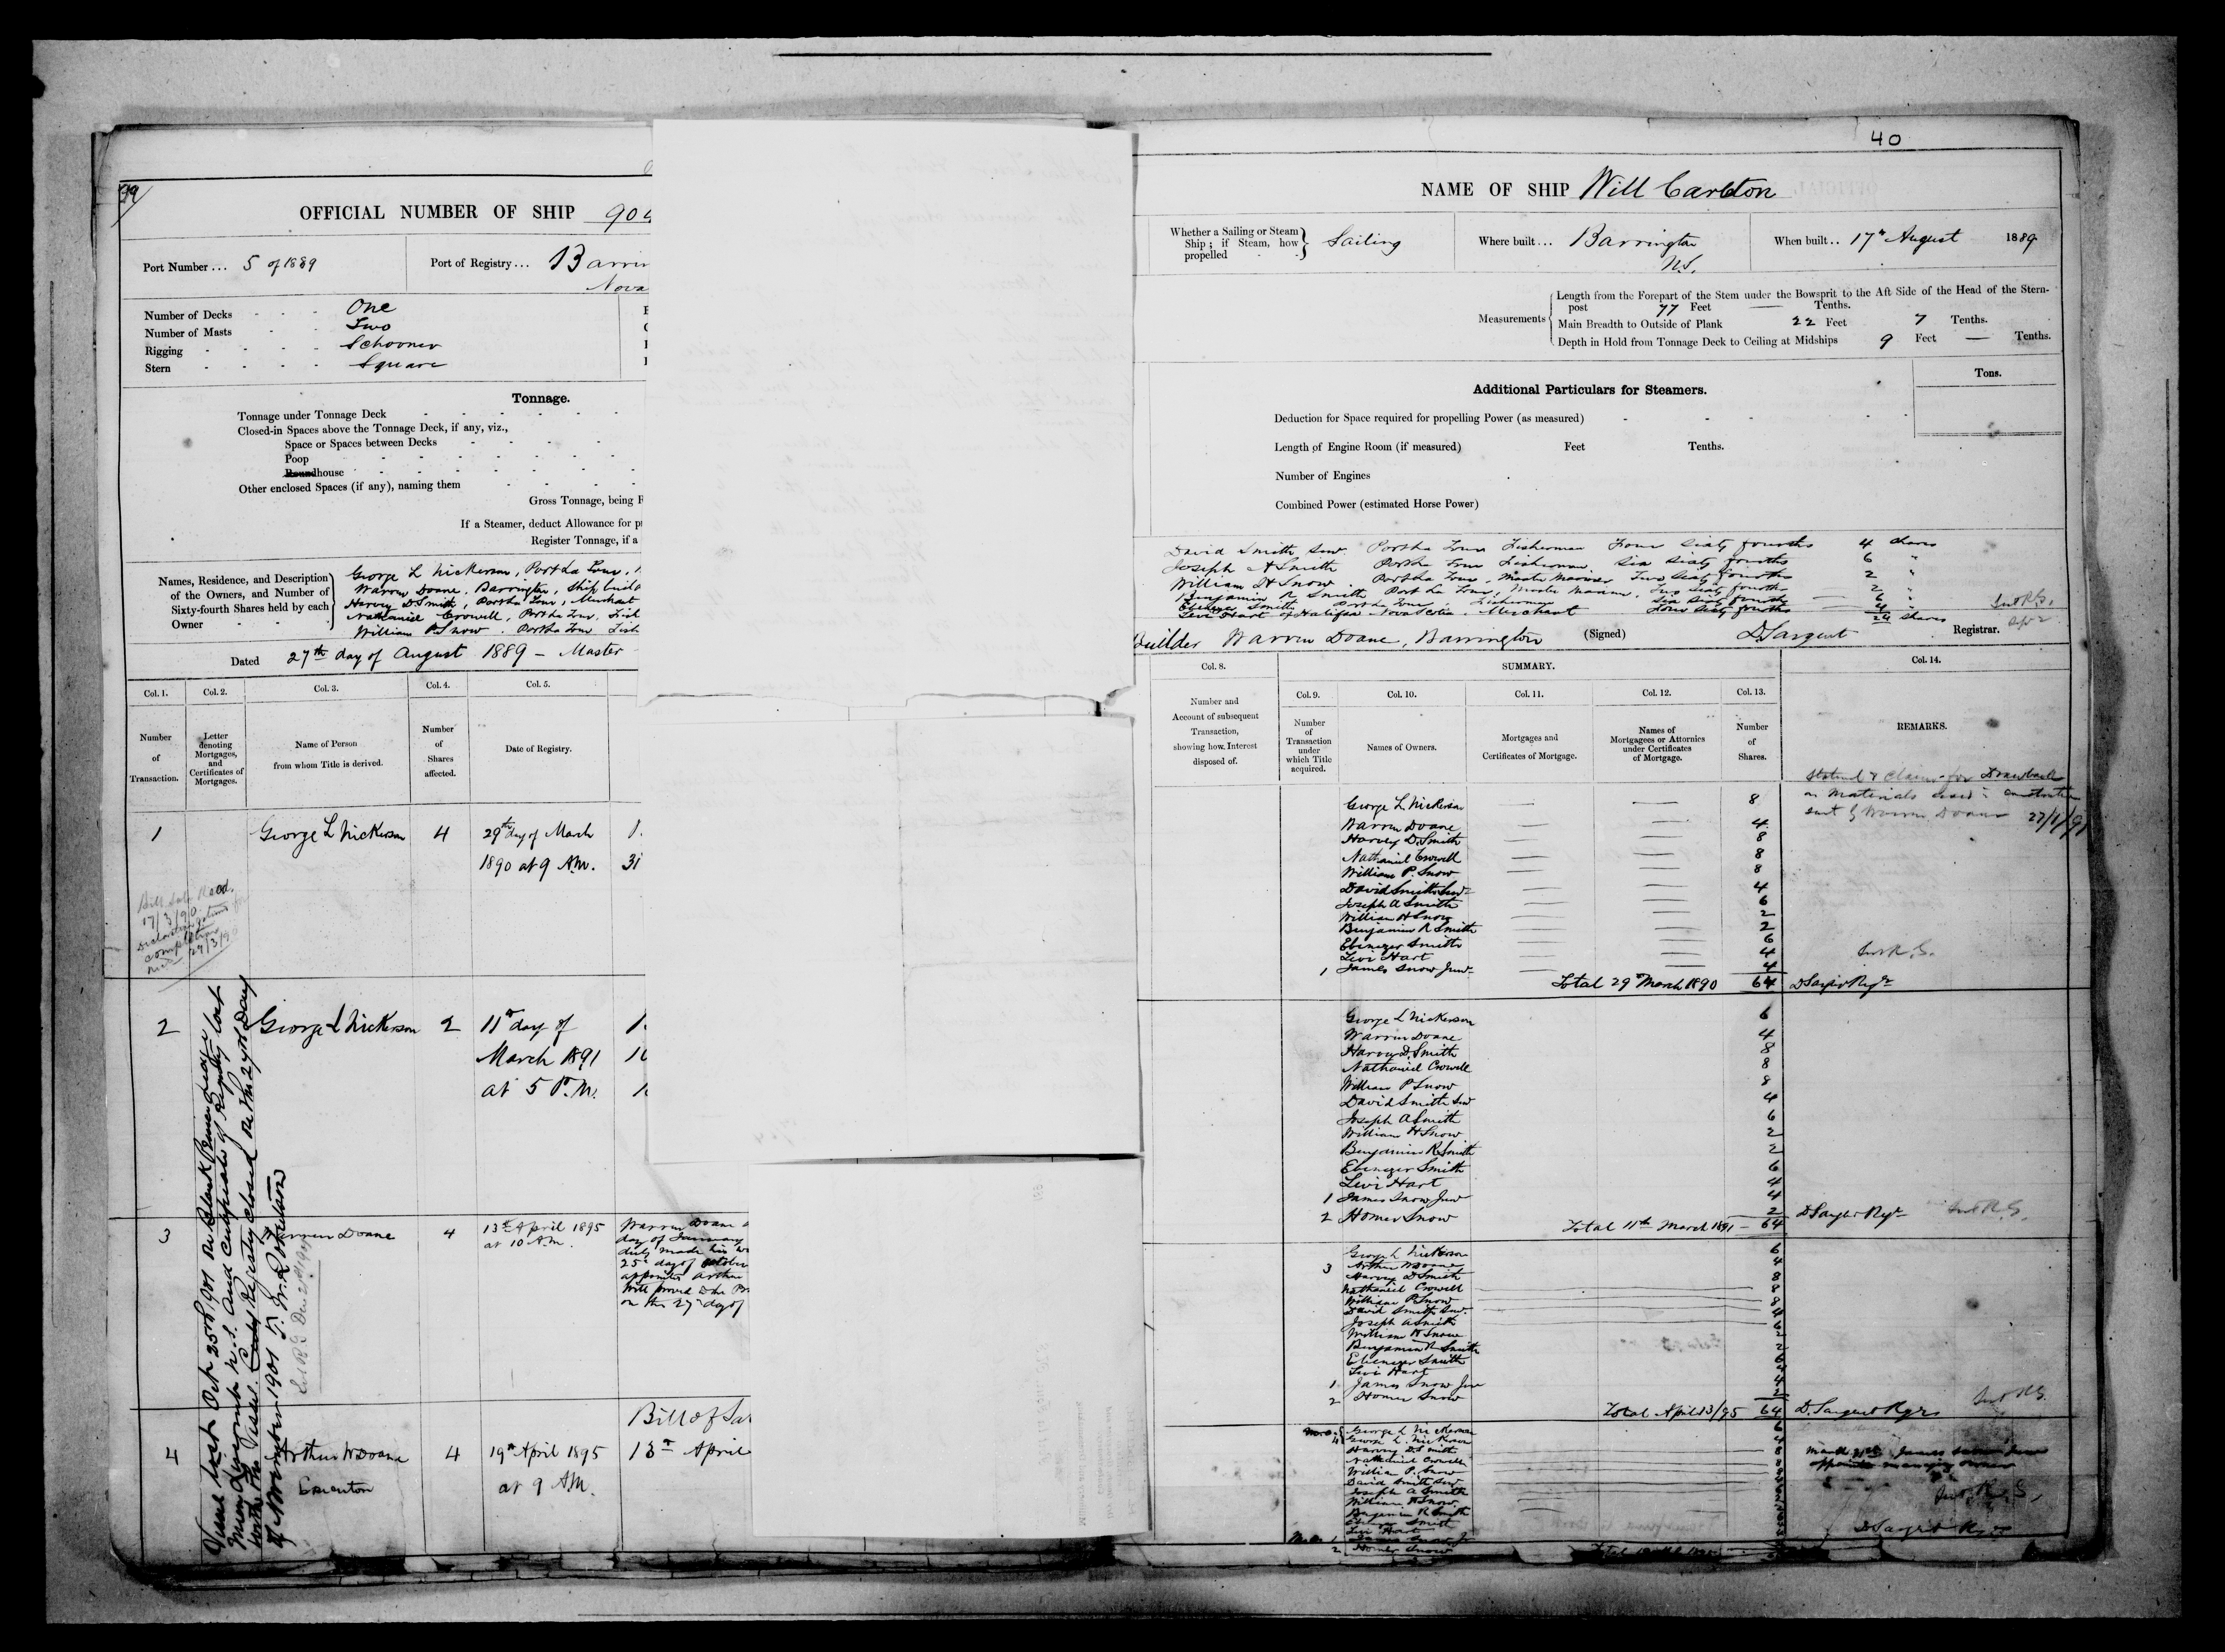 39
OFFICIAL NUMBER OF SHIP 904
Port Number... 5 of 1889
Port of Registry... Barrin
Nova
Number of Decks One
Number of Masts Two
Rigging Schooner
Stern Square
Tonnage.
Tonnage under Tonnage Deck
Closed-in Spaces above the Tonnage Deck, if any, viz.,
Space or Spaces between Decks
Poop
Roundhouse
Other enclosed Spaces (if any), naming them
Gross Tonnage, being R
If a Steamer, deduct Allowance for p
Register Tonnage, if a
Names, Residence, and Description of the Owners, and Number of Sixty-fourth Shares held by each Owner
George L Nickerson, Port La Tour,
Warren Doane, Barrington, Ship build
Harvey D. Smith, Port La Tour, Merchant
Nathaniel Crowell, Port La Tour, Fish
William P. Snow. Port La Tour Fish
Dated 27th day of August 1889 - Master
Col. 1.
Col. 2.
Col. 3.
Col. 4.
Col. 5.
Number of Transaction.
Letter denoting Mortgages, and Certificates of Mortgages.
Name of Person from whom Title is derived.
Number of Shares affected.
Date of Registry.
1 George L Nickerson 4 29th day of March
1890 at 9 A.M. 31
Bill Sale Recd.
17/3/90
completion
27/3/90
2 George L Nickerson 2 11th day of
March 1891
at 5 P.M.
3 Warren Doane 4 13th April 1895
at 10 A.M.
Warren Doane
day of January
duly made his
25th day of October
appointed Arthur
Will proved
on the 27th day of
Bill of Sa
4 Arthur W Doane 4 19th April 1895 13th April
Executor at 9 A.M.
Vessel lost Oct 23rd 1901 on Black
near Liverpool N.S. And Certificate of Registry lost
with the Vessel. Registry closed on this 27th Day
of November 1901 T. W. Robertson
40
NAME OF SHIP Will Carleton
Whether a Sailing or Steam Ship; if Steam, how propelled Sailing
Where built... Barrington
N.S.
When built.. 17th August 1889
Measurements
Length from the Forepart of the Stem under the Bowsprit to the Aft Side of the Head of the Stern-
post 77 Feet — Tenths.
Main Breadth to Outside of Plank 22 Feet 7 Tenths.
Depth in Hold from Tonnage Deck to Ceiling at Midships 9 Feet — Tenths.
Additional Particulars for Steamers.
Tons.
Deduction for Space required for propelling Power (as measured)
Length of Engine Room (if measured) Feet Tenths.
Number of Engines
Combined Power (estimated Horse Power)
David Smith Senr. Port La Tour Fisherman Four Sixty fourths 4 shares
Joseph A Smith Port La Tour Fisherman. Six Sixty fourths 6 "
William H Snow. Port La Tour, Master Mariner Two Sixty fourths 2 "
Benjamin R Smith Port La Tour, Master Mariner, Two Sixty fourths 2 "
Ebenezer Smith Port La Tour Fisherman Six Sixty fourths 6 "
Levi Hart of Halifax Nova Scotia. Merchant Four Sixty fourths 4
24 shares
Builder Warren Doane, Barrington (Signed) D Sargent Registrar.
Col. 8.
SUMMARY.
Col. 14.
Col. 9.
Col. 10.
Col. 11.
Col. 12.
Col. 13.
Number and Account of subsequent Transaction, showing how Interest disposed of.
Number of Transaction under which Title acquired.
Names of Owners.
Mortgages and Certificates of Mortgage.
Names of Mortgagees or Attornies under Certificates of Mortgage.
Number of Shares.
REMARKS.
Claim for Drawback
on Materials used in construction
sent by Warren Doane 27/1/91
George L Nickerson 8
Warren Doane 4
Harvey D. Smith 8
Nathaniel Crowell 8
William P. Snow 8
David Smith Senr 4
Joseph A Smith 6
William H Snow 2
Benjamin R Smith 2
Ebenezer Smith 6
Levi Hart 4
1 James Snow Junr 4
Total 29th March 1890 64 D Sargent Regr
George L Nickerson 6
Warren Doane 4
Harvey D. Smith 8
Nathaniel Crowell 8
William P Snow 8
David Smith Senr 4
Joseph A Smith 6
William H Snow 2
Benjamin R Smith 2
Ebenezer Smith 6
Levi Hart 4
1 James Snow Junr 4
2 Homer Snow 2
Total 11th March 1891 - 64 D Sargent Regr
George L Nickerson 6
3 Arthur W Doane 4
Harvey D Smith 8
Nathaniel Crowell 8
William P Snow 8
David Smith Senr. 4
Joseph A Smith 6
William H Snow 2
Benjamin R Smith 2
Ebenezer Smith 6
Levi Hart 4
1 James Snow Junr 4
2 Homer Snow 2
Total April 13/95 64 D. Sargent Regr
George L Nickerson 6
4 George L. Nickerson 4
Harvey D Smith 8
Nathaniel Crowell
William P. Snow
David Smith Senr
Joseph A Smith
William H Snow
Benjamin R Smith
Ebenezer Smith
Levi Hart
2 Homer Snow
D Sargent Regr